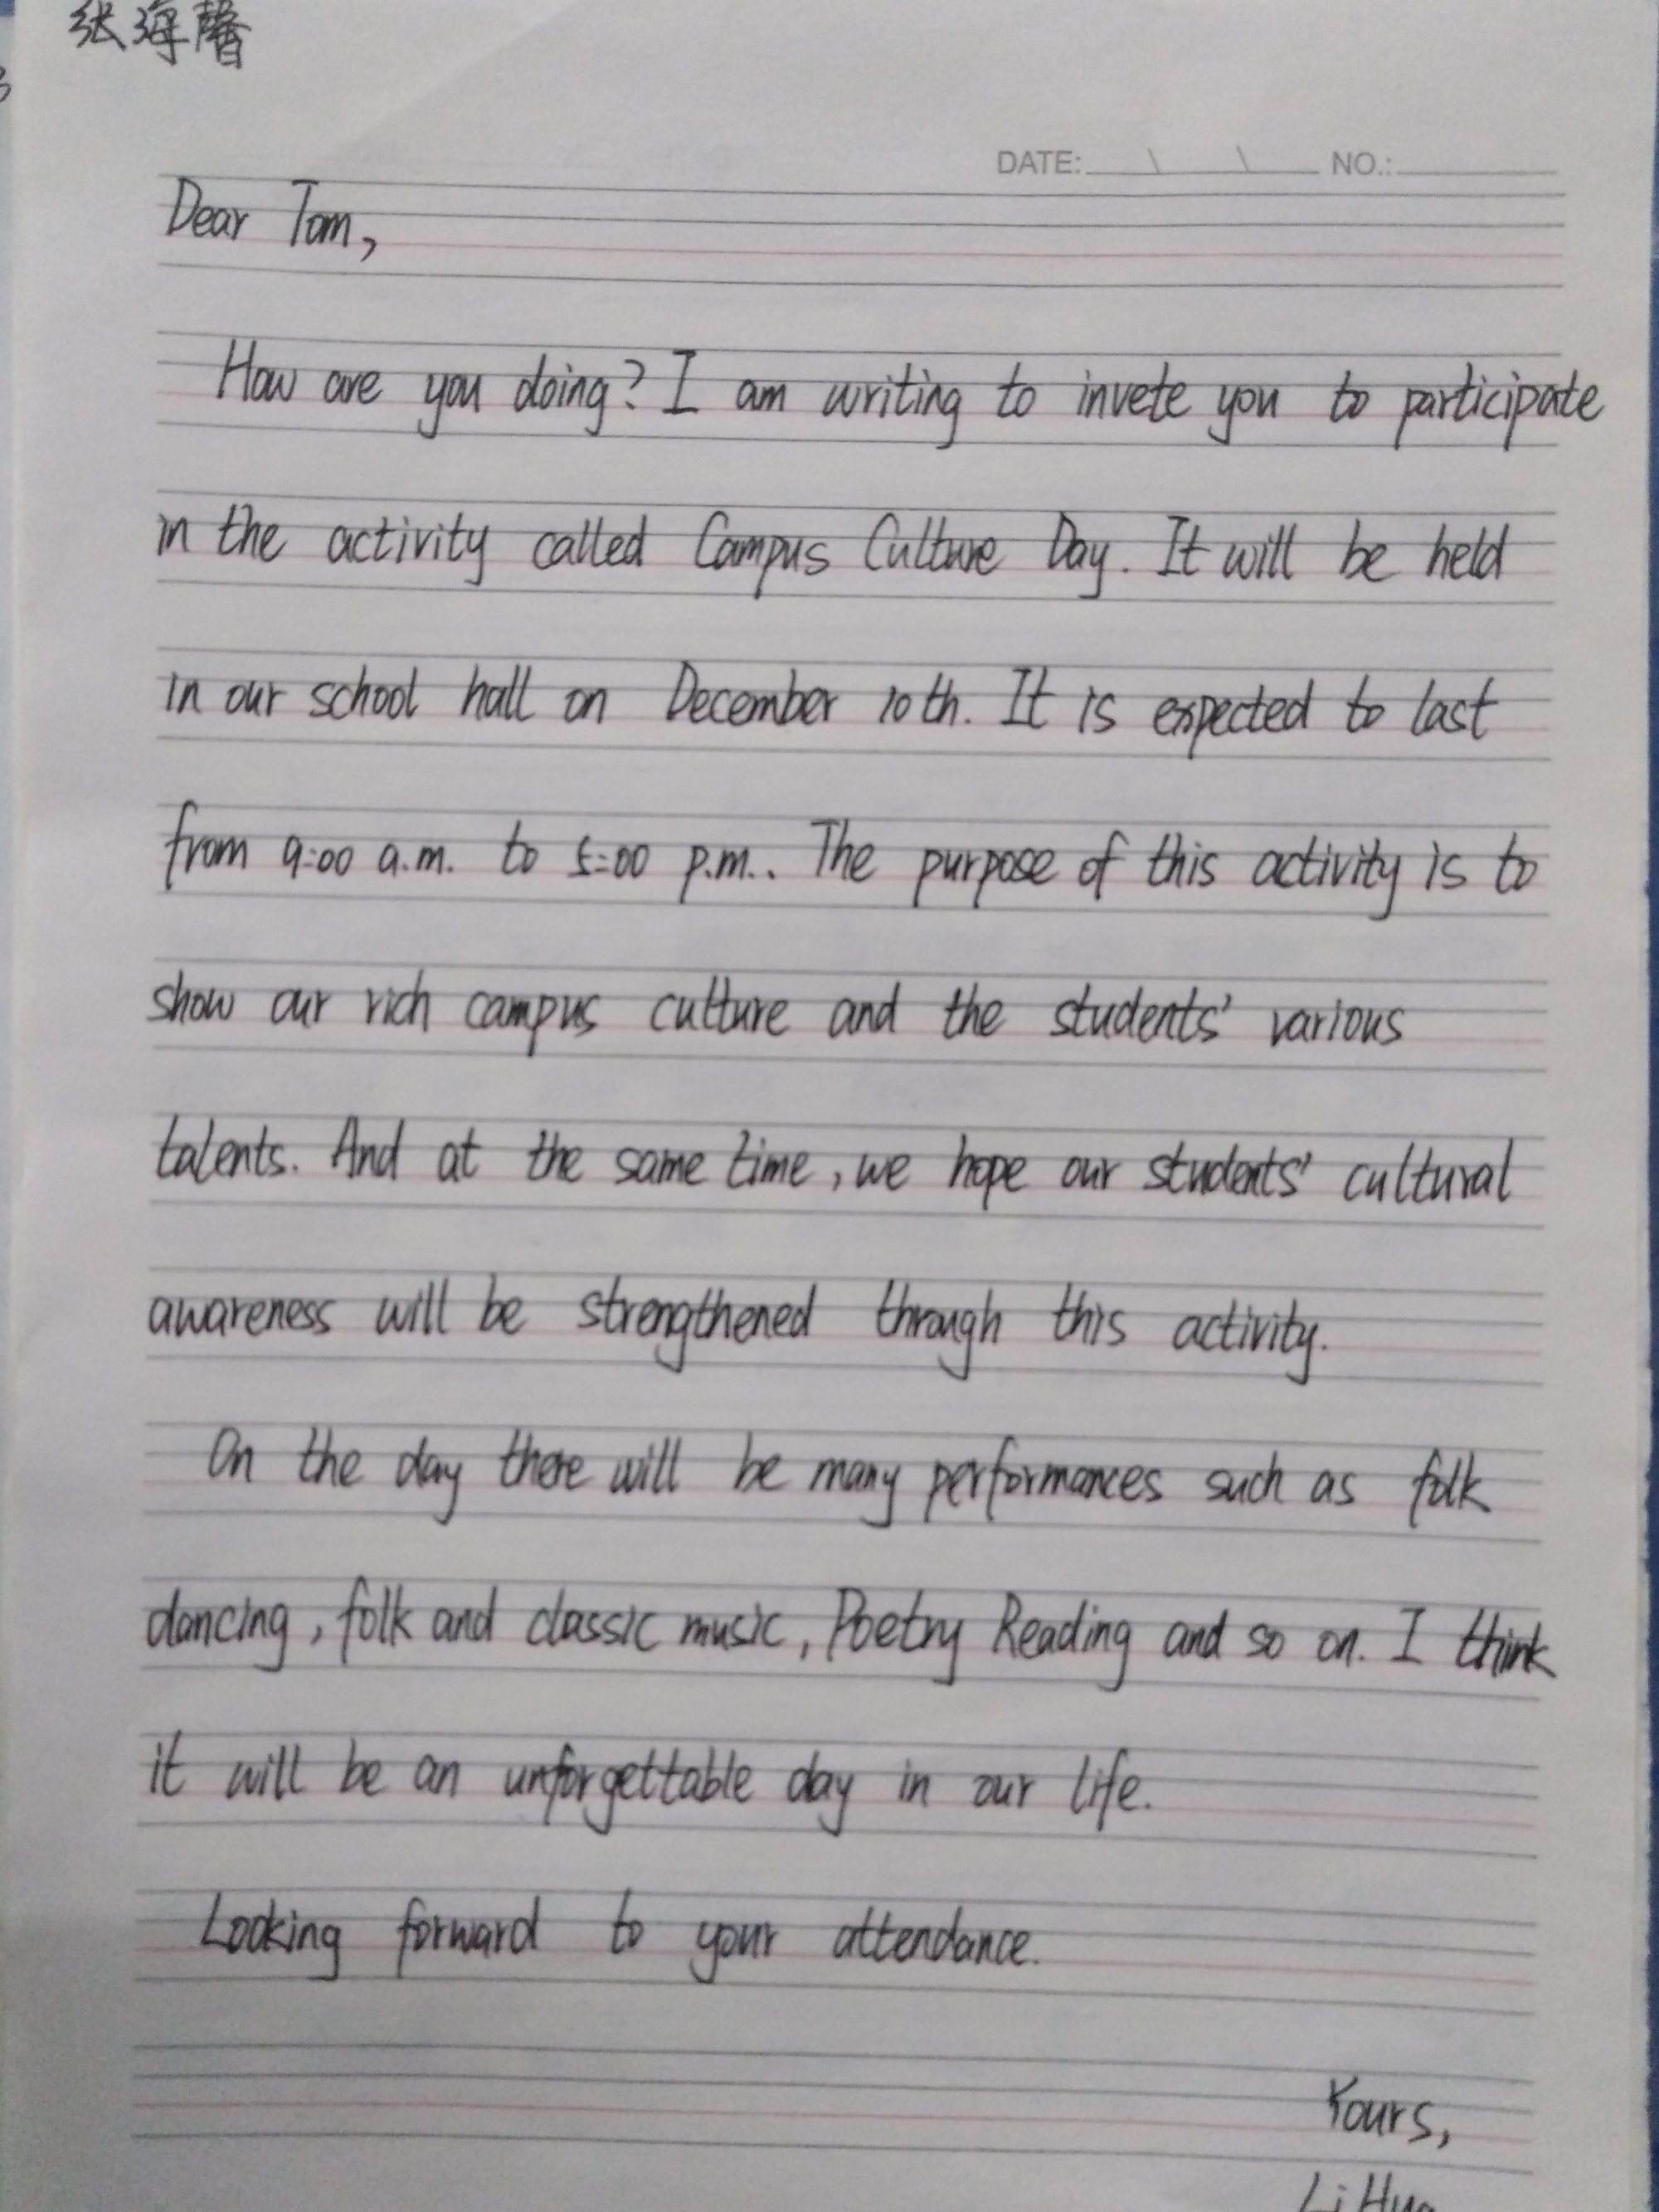 张海馨
DATE: \ \ NO.:
Dear Tom,
How are you doing? I am writing to invete you to participate
in the activity called Campus Culture Day. It will be held
in our school hall on December 10th. It is expected to last
from 9:00 a.m. to 5:00 p.m.. The purpose of this activity is to
show our rich campus culture and the students' various
talents. And at the same time, we hope our students' cultural
awareness will be strengthened through this activity.
On the day there will be many performances such as folk
dancing, folk and classic music, Poetry Reading and so on. I think
it will be an unforgettable day in our life.
Looking forward to your attendance.
Yours,
Li Hua